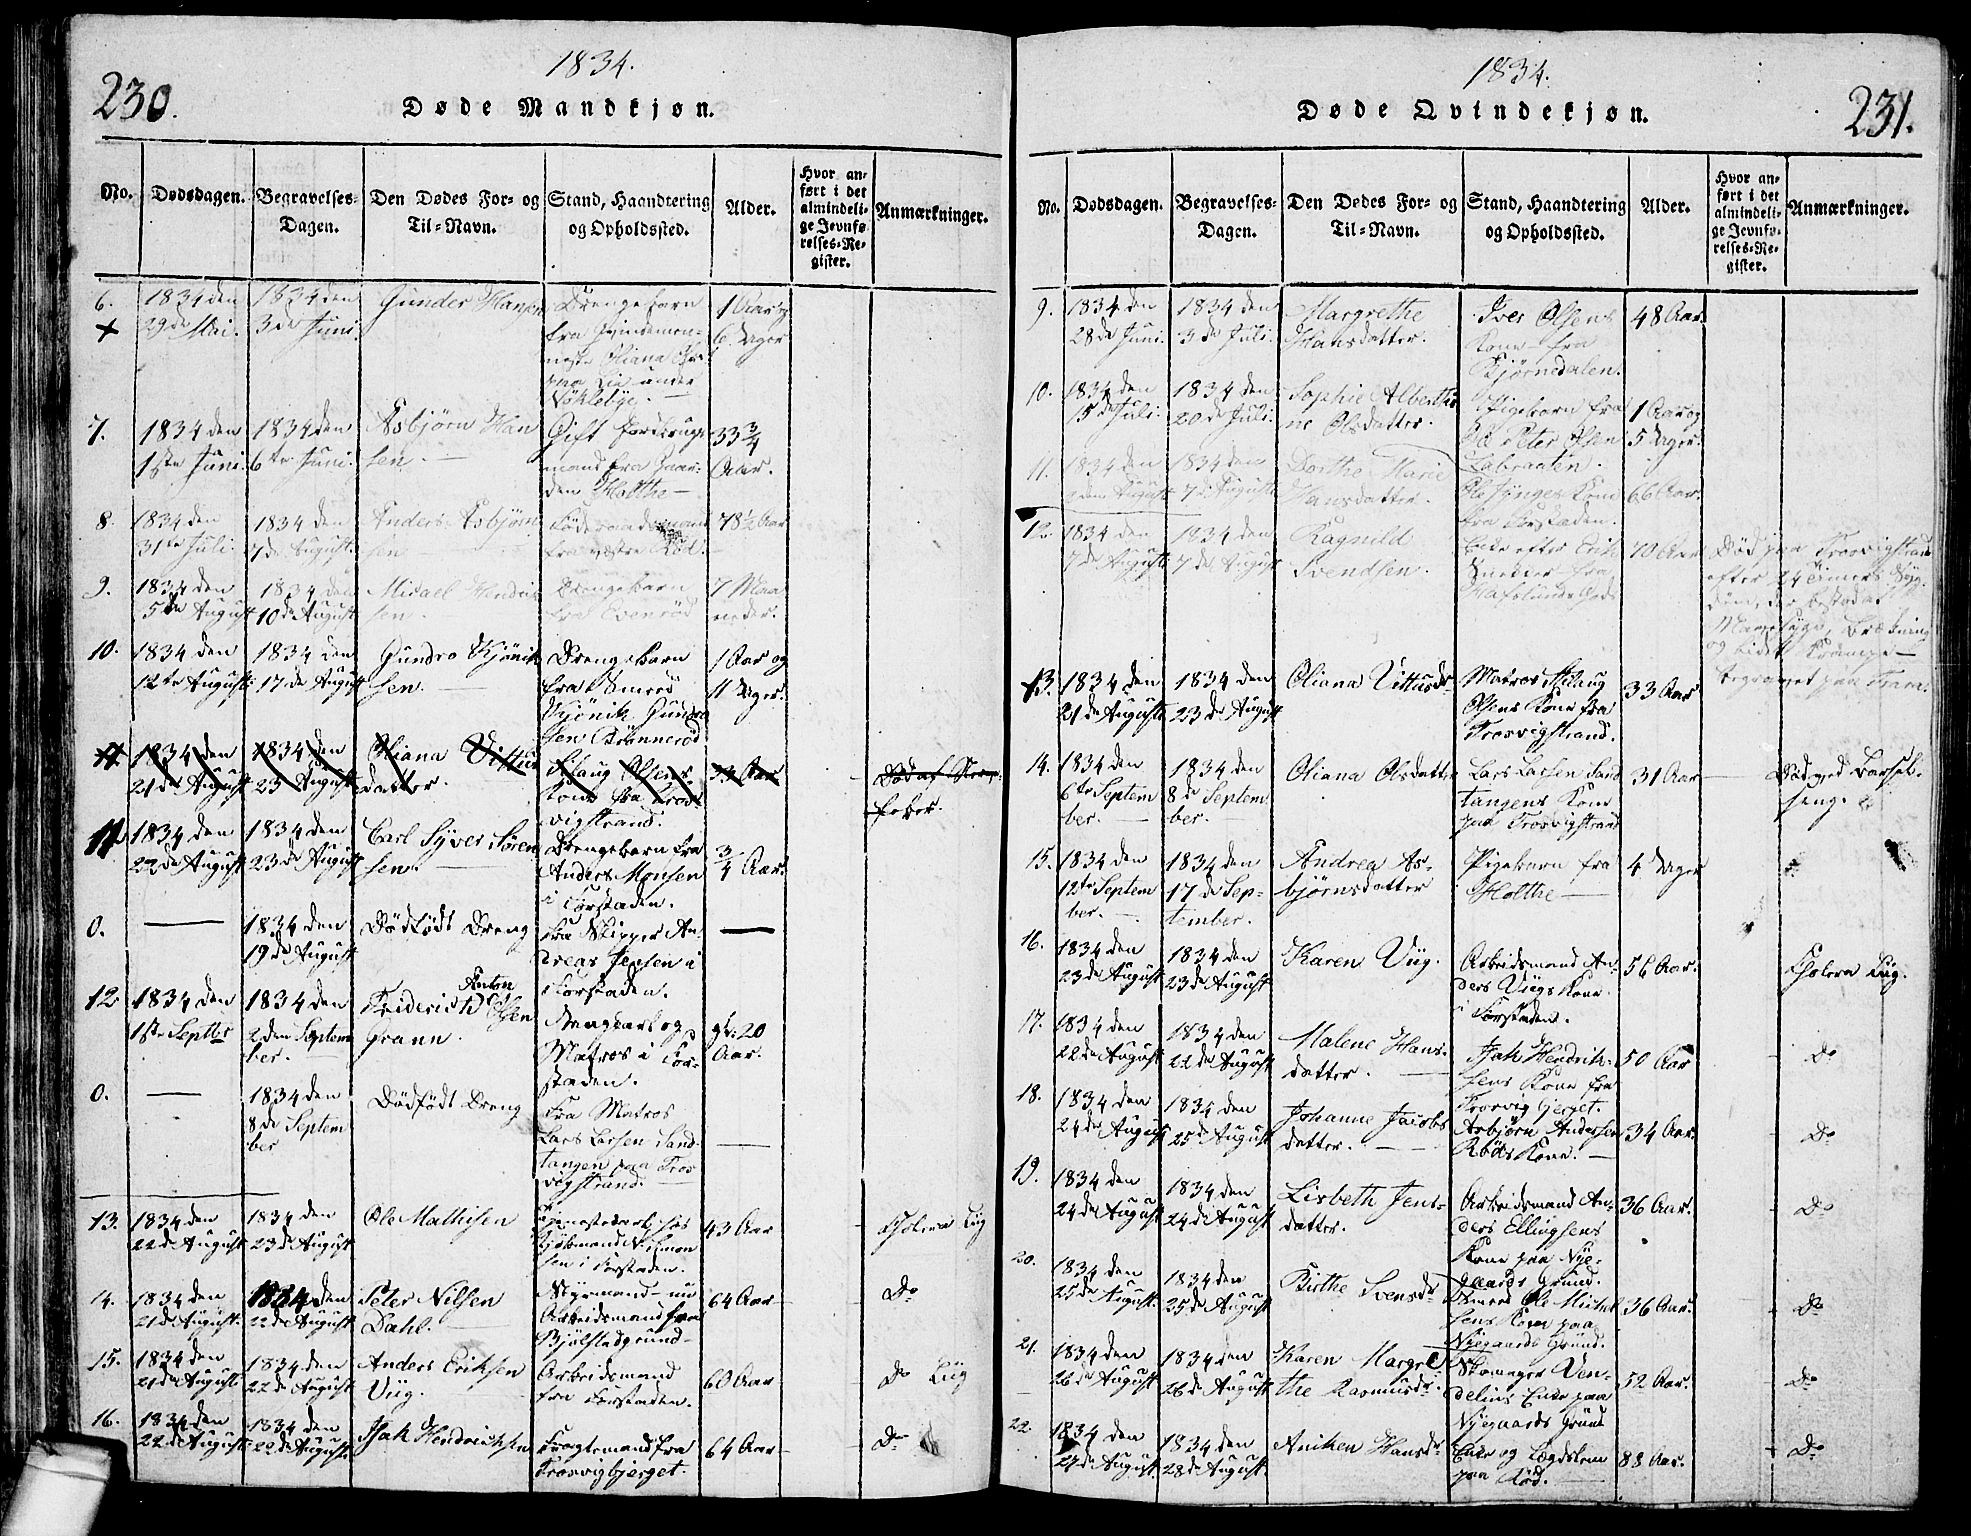 230.
1834.
Døde Mandkjøn.
No.
Dødsdagen.
Begravelses-
Dagen.
Den Dødes For- og
Til-Navn.
Stand, Haandtering
og Opholdssted.
Alder.
Hvor an-
ført i det
almindeli-
ge Jevnfø-
relses-Re-
gister.
Anmærkninger.
6.
1834 den
29de Mai.
1834 den
3de Juni.
Gunder Hansen
Drengebarn
fra
Oliana
paa Lie under
Nöklebye.
1 Aar og
6 Dager
7.
1834 den
1ste Juni.
1834 den
6te Juni.
Asbjørn Han
sen.
Gift
mand fra Gaar-
den Holthe
33 3/4
Aar.
8.
1834 den
31te Juli.
1834 den
7de August.
Anders Asbjørn
sen
Föderaadsmand
fra västre Röd.
78 1/2 Aar
9.
1834 den
5de August
1834 den
10de August
Micael Hendrik
sen.
Drengebarn
fra Evenröd
7 Maa
neder.
10.
1834 den
12te August
1834 den
17de August
Gundro Kjönik
sen.
Drengebarn
fra Smeröd
Kjönik Gundro
sen Brönneröd
1 Aar og
11 Dager.
11
1834 den
21de August
1834 den
23 August
Oliana Vittus
datter.
Aslaug Olsens
Kone fra Tros-
vigstrand.
33 Aar
Död af
11
1834 den
22de August
1834 den
23de August
Carl Syver Sören
sen.
Drengebarn fra
Anders Monsen
i Forstaden.
3/4 Aar.
0.
1834 den
19de August
Dödfödt Dreng
fra Skipper An-
dreas Jensen i
Forstaden.
12
1834 den
1ste Septbr
1834 den
2den Septem
ber.
Friderich Anton Olsen
Grann.
Ungkarl og
Matros i For-
staden.
20
Aar.
0.
1834 den
8de Septem
ber
Dödfödt Dreng
Fra Matros
Lars Larsen Sand-
tangen paa Tros
vigstrand.
13.
1834 den
22de August
1834 den
23de August
Ole Mathisen
sen i Forstaden.
43 Aar
Cholera Liig
14.
1834 den
21de August.
1834 den
22de August
Peter Nilsen
Dahl.
Styrmand nu
Arbeidsmand fra
Bjölstadgrund
64 Aar
Do
15.
1834 den
21de August
1834 den
22de August
Anders Eriksen
Viig.
Arbeidsmand
fra Forstaden.
60 Aar
Do Liig
16.
1834 den
22de August
1834 den
22de August
Jak Hendrichsen
Fragtemand fra
Trosvigbjerget.
64 Aar
Do
1834.
231.
Døde Qvindekjøn.
No.
Dødsdagen.
Begravelses-
Dagen.
Den Dødes For- og
Til-Navn.
Stand, Haandtering
og Opholdssted.
Alder.
Hvor an-
ført i det
almindeli-
ge Jevnfø-
relses-Re-
gister.
Anmærkninger.
9.
1834 den
28de Juni.
1834 den
3de Juli.
Margrethe
Hansdatter.
Iver Olsens
Kone fra
Bjørnedalen.
48 Aar.
10.
1834 den
15de Juli.
1834 den
20de Juli.
Sophie Alberthi
ne Olsdatter.
Pigebarn fra
Ole Peter Olsen
Labraaten.
1 Aar og
5 Dager.
11.
1834 den
2den August
1834 den
7de August
Dorthe Marie
Hansdatter.
Ole Synges Kone
fra Forstaden.
66 Aar.
12.
1834 den
7de August
1834 den
7de August
Ragnild
Svendsen.
Enke efter Erik
fra
Hafslunds Gods
70 Aar
Död paa Trosvigstrand
efter 24 Timers Syg
dom, der bestod af
Mavesyge, Brækning
og sidst Krampe
begravet paa
13.
1834 den
21de August
1834 den
23de August
Oliana Vittusdr
Matros Aslaug
Olsens Kone fra
Trosvigstrand.
33 Aar
14.
1834 den
6te Septem
ber.
1834 den
8de Septem
ber.
Oliana Olsdatter
Lars Larsen Sand
tangens Kone
paa Trosvigstrand
31 Aar
Död ved Barsel-
seng.
15.
1834 den
12te Septem
ber.
1834 den
17de Sep-
tember.
Andrea As-
bjørnsdatter
Pigebarn fra
Holthe
4 Dager
16.
1834 den
23de August
1834 den
23de August
Karen Viig.
Arbeidsmand An-
ders Viigs Kone
i Forstaden.
56 Aar.
Cholera Liig.
17.
1834 den
22de August
1834 den
22de August
Malene Hans-
datter.
Jak Hendrik-
sens Kone fra
Trosvigbjerget.
50 Aar
Do
18.
1834 den
24de August
1834 den
25de August
Johanne Jacobs
datter.
Asbjörn Andersen
Röds Kone.
34 Aar.
Do
19.
1834 den
24de August
1834 den
24de August
Lisbeth Jens-
datter.
Arbeidsmand An-
ders Ellingsens
Kone paa Nye-
gaards Grund.
36 Aar.
Do
20.
1834 den
25de August.
1834 den
25de August
Birthe Svensdr
Ole Michel
sens Kone paa
Nyegaards Grund.
36 Aar.
Do
21.
1834 den
26de August
1834 den
26de August
Karen Margre
the Rasmusdr.
Skomager Ven-
delius Enke paa
Nyegaards Grund
52 Aar.
Do
22
1834 den
27de August
1834 den
28de August
Aniken Hansdr
Enke og Lægdslem
paa Röd.
88 Aar.
Do